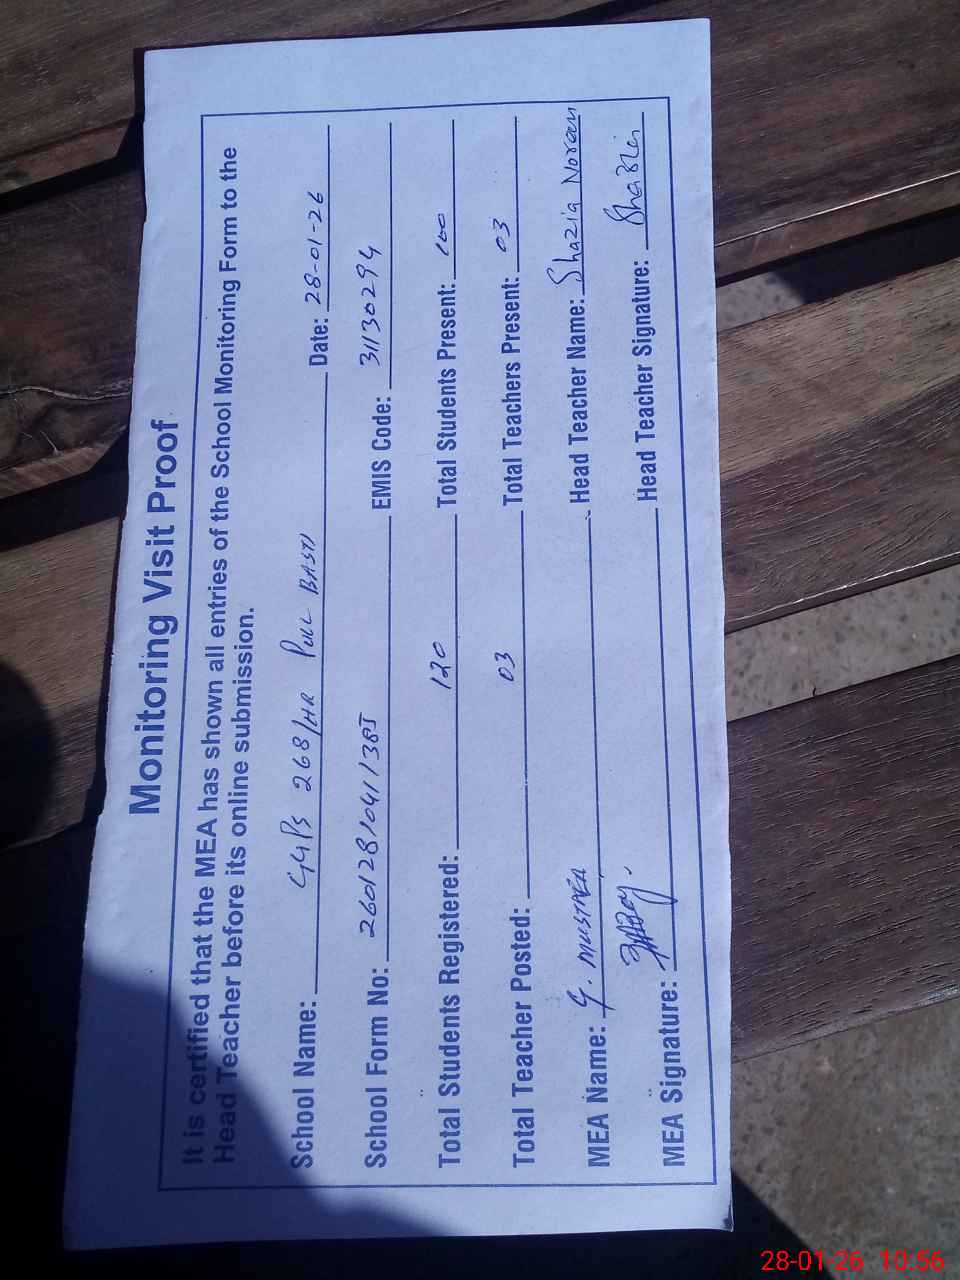 Monitoring Visit Proof
It is certified that the MEA has shown all entries of the School Monitoring Form to the
Head Teacher before its online submission.
School Name: GGPS 268/HR PULL BASTI Date: 28-01-26
School Form No: 26012810411385 EMIS Code: 31130294
Total Students Registered: 120 Total Students Present: 100
Total Teacher Posted: 03 Total Teachers Present: 03
MEA Name: G. MUSTAFA Head Teacher Name: Shazia Noreen
MEA Signature: Head Teacher Signature: Shazia
28-01-26 10:56